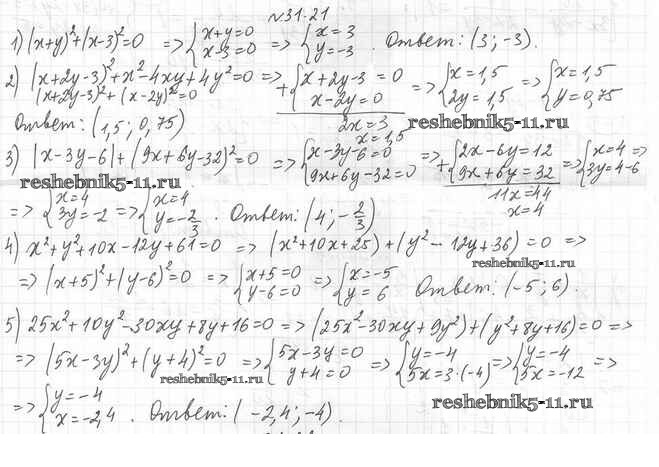 №31.21
1) (x+y)²+(x-3)²=0 => {x+y=0 x-3=0 => {x=3 y=-3 . Ответ: (3; -3).
2) (x+2y-3)²+x²-4xy+4y²=0 => +{x+2y-3=0 x-2y=0 => {x=1,5 2y=1,5 => {x=1,5 y=0,75
(x+2y-3)²+(x-2y)²=0
2x=3
x=1,5
Ответ: (1,5; 0,75)
reshebnik5-11.ru
3) |x-3y-6|+(9x+6y-32)²=0 => {x-3y-6=0 9x+6y-32=0 => +{2x-6y=12 9x+6y=32 => {x=4 3y=4-6 =>
11x=44
x=4
reshebnik5-11.ru
=> {x=4 3y=-2 => {x=4 y=-2/3 . Ответ: (4; -2/3)
4) x²+y²+10x-12y+61=0 => (x²+10x+25)+(y²-12y+36)=0 =>
reshebnik5-11.ru
=> (x+5)²+(y-6)²=0 => {x+5=0 y-6=0 => {x=-5 y=6 Ответ: (-5; 6).
5) 25x²+10y²-30xy+8y+16=0 => (25x²-30xy+9y²)+(y²+8y+16)=0 =>
=> (5x-3y)²+(y+4)²=0 => {5x-3y=0 y+4=0 => {y=-4 5x=3·(-4) => {y=-4 5x=-12 =>
reshebnik5-11.ru
=> {y=-4 x=-2,4 . Ответ: (-2,4; -4).
reshebnik5-11.ru